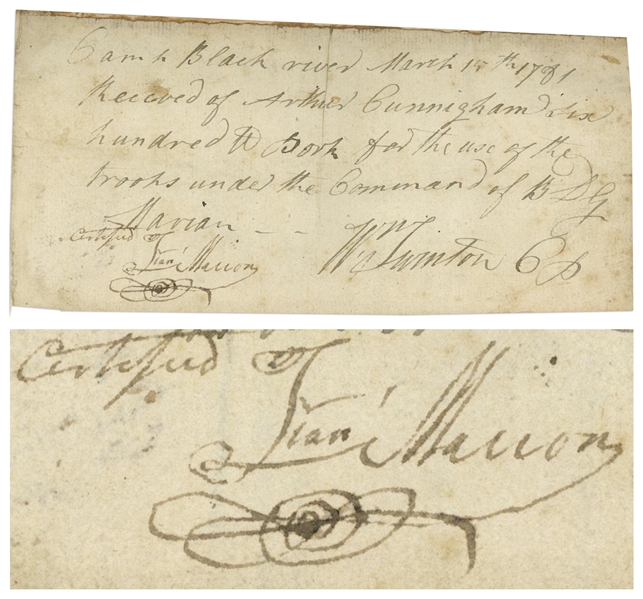 Camp Black river March 15th 1781
Received of Arthur Cunnigham six
hundred lb Pork for the use of the
troops under the Command of B D G
Marian - -
Wm Swinton C P
Certified
Fran' Marion
Certified
Fran' Marion